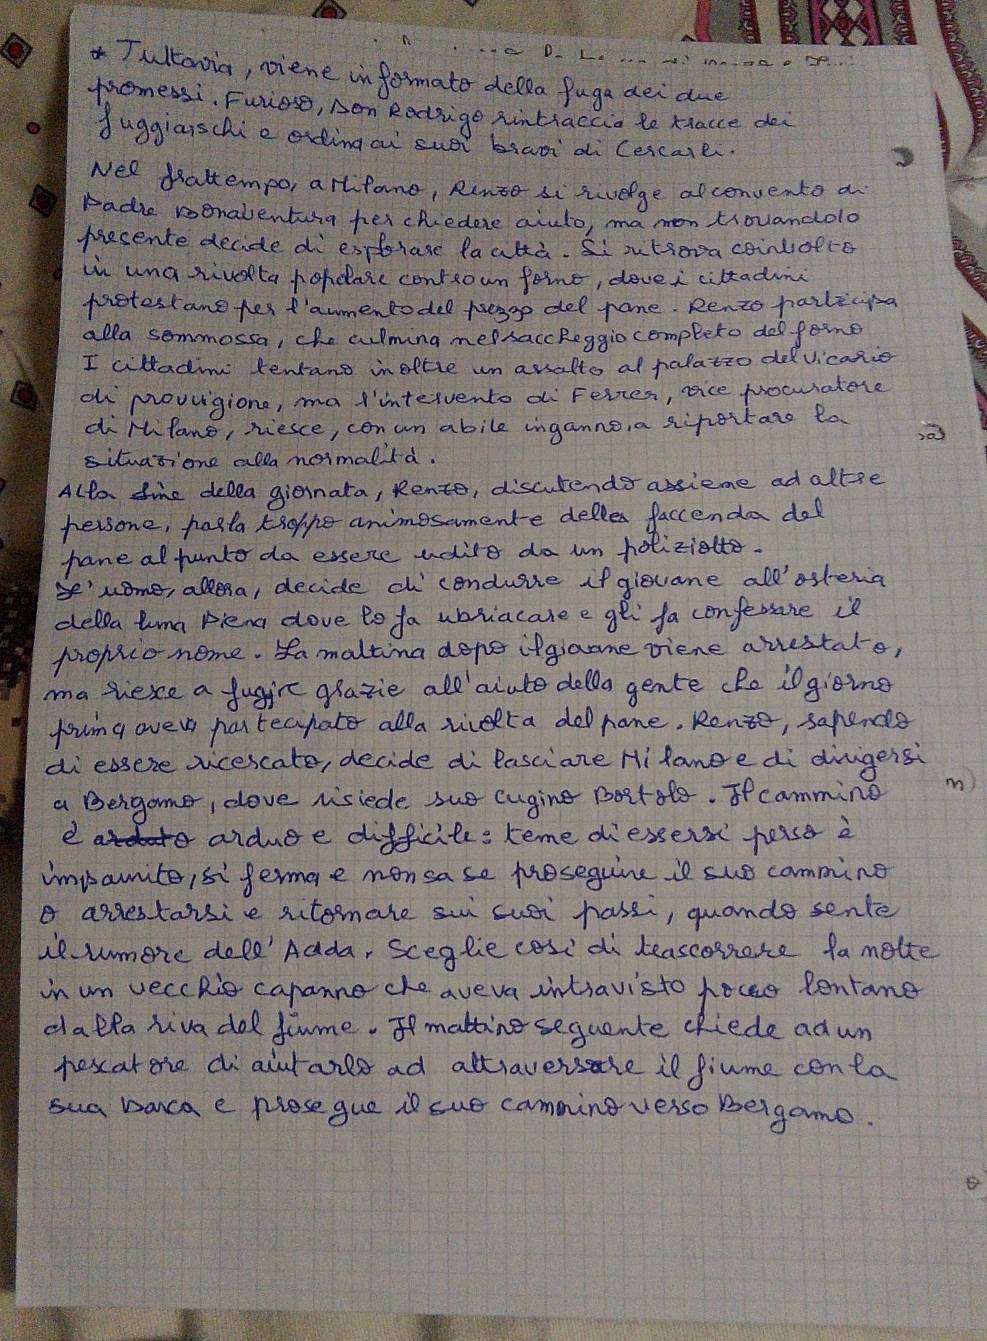 * Tuttavia, viene informato della fuga dei due
promessi. Furioso, Don Rodrigo rintraccia le tracce dei
fuggiaschi e ordina ai suoi bravi di Cercarli.
Nel frattempo, a Milano, Renzo si rivolge al convento di
Padre Bonaventura per chiedere aiuto, ma non trovandolo
presente decide di esplorare la città. Si ritrova coinvolto
in una rivolta popolare contro un forno, dove i cittadini
protestano per l'aumento del prezzo del pane. Renzo partecipa
alla sommossa, che culmina nel saccheggio completo del forno
I cittadini tentano inoltre un assalto al palazzo del vicario
di provvigione, ma l'intervento di Ferrer, vice procuratore
di Milano, riesce, con un abile inganno, a riportare la
situazione alla normalità.
Alla fine della giornata, Renzo, discutendo assieme ad altre
persone, parla troppo animosamente della faccenda del
pane al punto da essere udito da un poliziotto.
L'uomo, allora, decide di condurre il giovane all'osteria
della luna Piena dove lo fa ubriacare e gli fa confessare il
proprio nome. La mattina dopo il giovane viene arrestato,
ma riesce a fuggire grazie all'aiuto della gente che il giorno
prima aveva partecipato alla rivolta del pane. Renzo, sapendo
di essere ricercato, decide di lasciare Milano e di dirigersi
a Bergamo, dove risiede suo cugino Bortolo. Il cammino
è arduo e difficile: teme di essersi perso è
impaurito, si ferma e non sa se proseguire il suo cammino
o arrestarsi e ritornare sui suoi passi, quando sente
il rumore dell'Adda. Sceglie così di trascorrere la notte
in un vecchio capanno che aveva intravisto poco lontano
dalla riva del fiume. Il mattino seguente chiede ad un
pescatore di aiutarlo ad attraversare il fiume con la
sua barca e prosegue il suo cammino verso Bergamo.